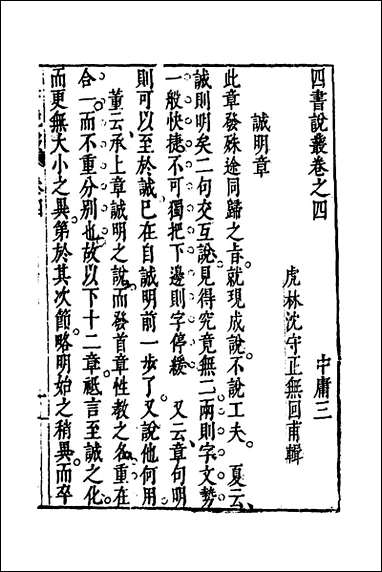 四書說叢卷之四　　中庸三
虎林沈守正無回甫輯
誠明章
此章發殊途同歸之旨就現成說不說工夫　夏云
誠則明矣二句交互說見得究竟無二兩則字文勢
一般快捷不可獨把下邊則字停緩　又云章句明
則可以至於誠已在自誠明前一步了又說他何用
董云承上章誠明之說而發首章性教之名重在
合一而不重分別也故以下十二章祗言至誠之化
而更無大小之異第於其次節略明始之稍異而卒